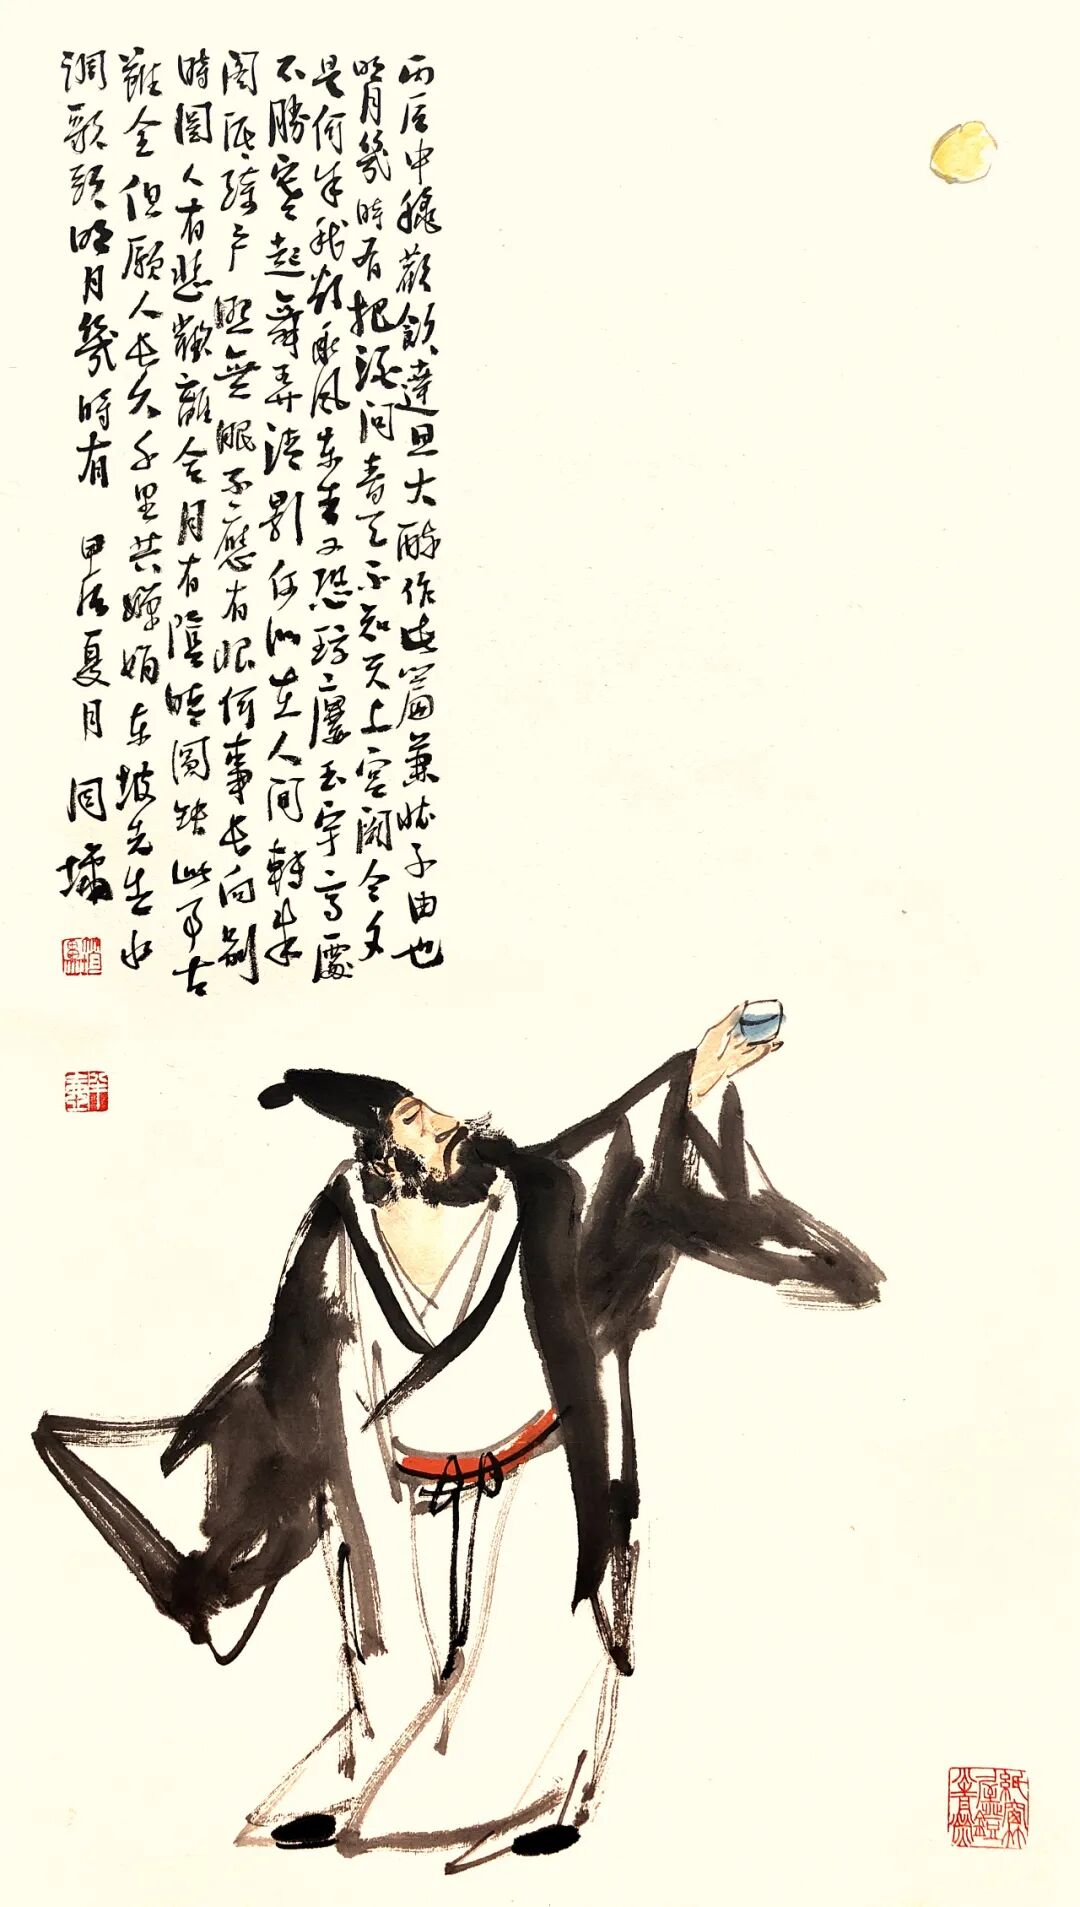 丙辰中秋歡飲達旦大醉作此篇兼懷子由也
明月幾時有把酒問青天不知天上宮闕今夕
是何年我欲乘風歸去又恐瓊樓玉宇高處
不勝寒起舞弄清影何似在人間轉朱
閣低綺戶照無眠不應有恨何事長向別
時圓人有悲歡離合月有陰晴圓缺此事古
難全但願人長久千里共嬋娟東坡先生水
調歌頭明月幾時有 甲辰夏月
半壺